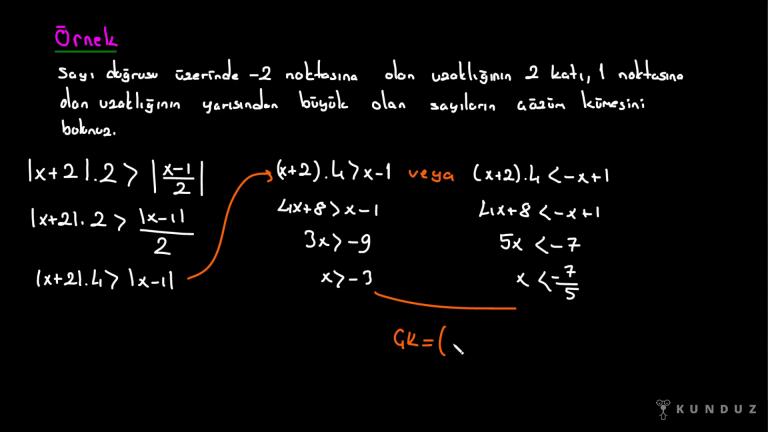 Örnek
Sayı doğrusu üzerinde -2 noktasına olan uzaklığının 2 katı, 1 noktasına
olan uzaklığının yarısından büyük olan sayıların çözüm kümesini
bulunuz.
|x+2|.2 > |x-1/2|
|x+2|.2 > |x-1|/2
|x+2|.4 > |x-1|
(x+2).4 > x-1 veya (x+2).4 < -x+1
4x+8 > x-1 4x+8 < -x+1
3x > -9 5x < -7
x > -3 x < -7/5
ÇK = (
KUNDUZ